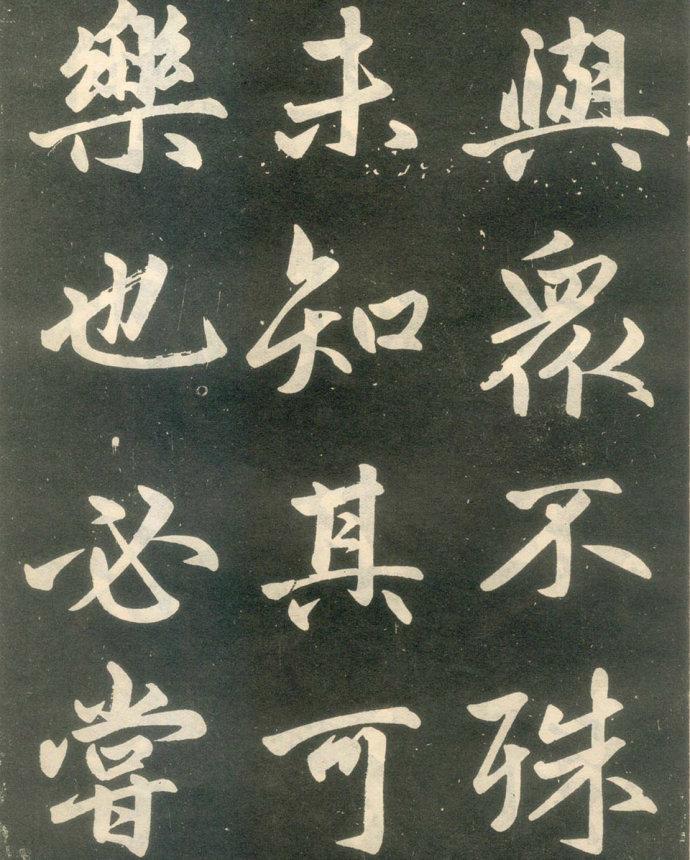 與眾不殊
未知其可
樂也必嘗